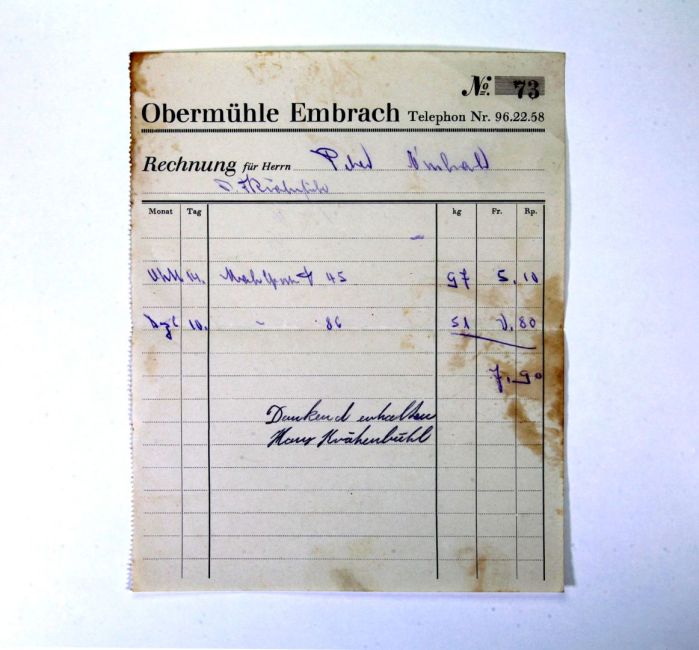 № 73
Obermühle Embrach Telephon Nr. 96.22.58
Rechnung für Herrn Peter
Monat Tag kg Fr. Rp.
14. 45 97 5. 10
Dez 10. " 86 51 80
7.90
Dankend erhalten
Hans Krähenbühl